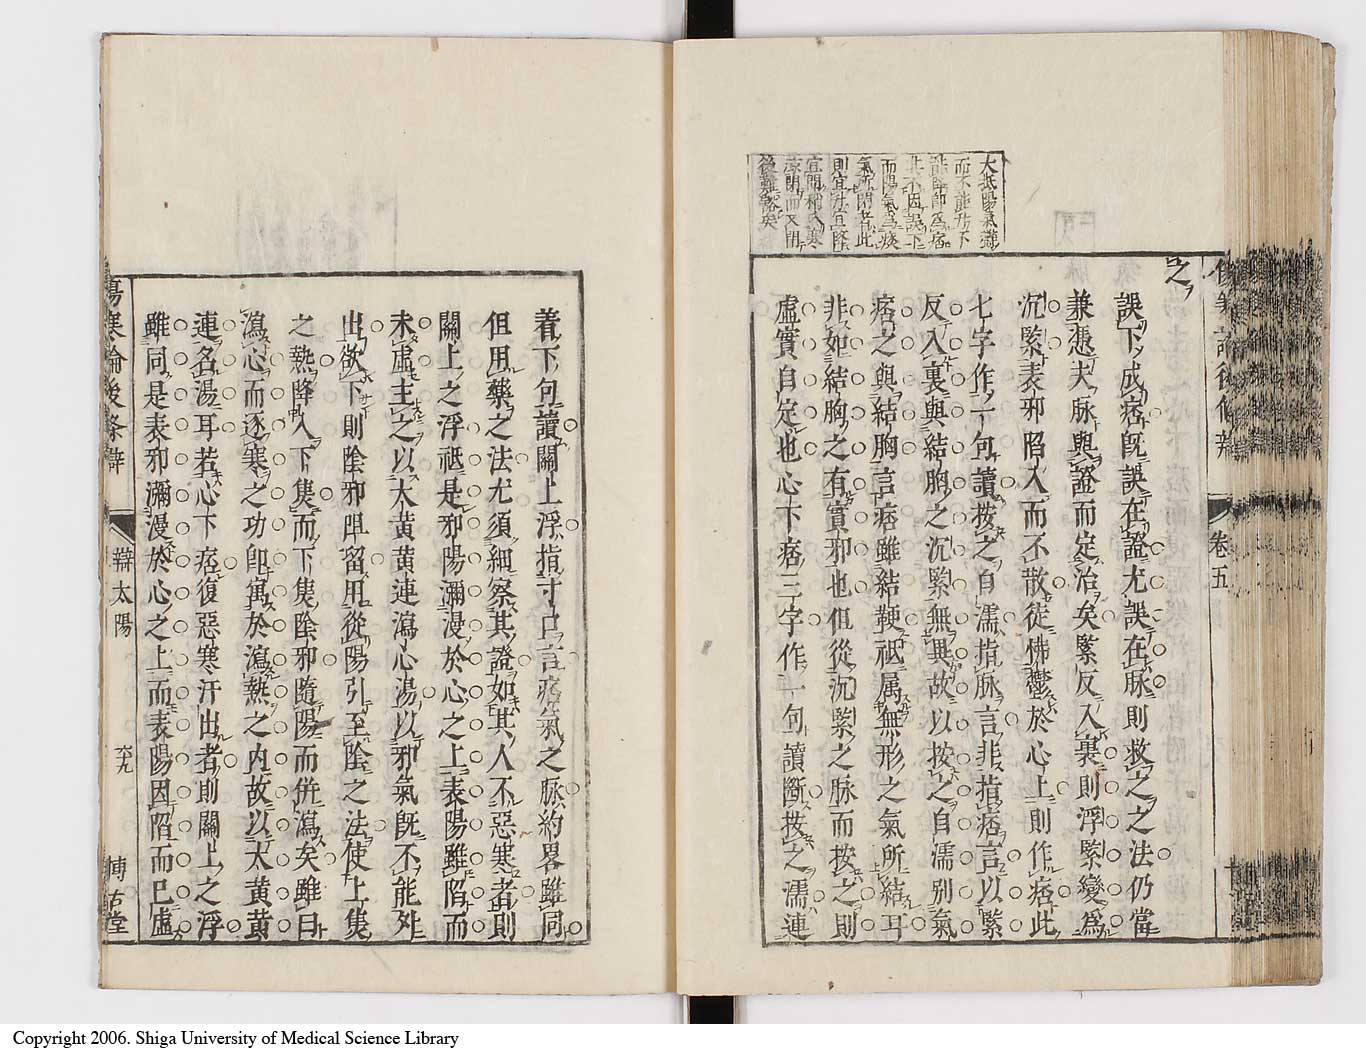 之
誤下成痞既誤在證尤誤在脉則救之之法仍當
兼憑夫脉與證而定治矣緊反入裏則浮緊變爲
沉緊表邪陷入而不散徒怫鬱於心上則作痞此
七字作一句讀按之自濡指脉言非指痞言以緊
反入裏與結胸之沉緊無異故以按之自濡別氣
痞之與結胸言痞雖結鞕祗属無形之氣所結耳
非如結胸之有實邪也但從沉緊之脉而按之則
虛實自定也心下痞三字作一句讀斷按之濡連
大抵陽氣
而不能升下
非降卽爲痞
其不因誤下
而陽氣爲痰
氣所閉者此
則宜升宜降
宜開稍入寒
涼閉而又閉
後難啓矣
卷五
着下句讀關上浮指寸口言痞氣之脉約畧雖同
但用藥之法尤須細察其證如其人不惡寒者則
關上之浮祗是邪陽瀰漫於心之上表陽雖陷而
未虛主之以大黃黃連瀉心湯以邪氣旣不能外
出欲下則陰邪阻留用從陽引至陰之法使上集
之熱降入下集而下集陰邪隨陽而倂瀉矣雖曰
瀉心而逐寒之功卽寓於瀉熱之內故以大黃黃
連名湯耳若心下痞復惡寒汗出者則關上之浮
雖同是表邪瀰漫於心之上而表陽因陷而已虛
傷寒論後条辯
辯太陽
六十九
博古堂
Copyright 2006. Shiga University of Medical Science Library